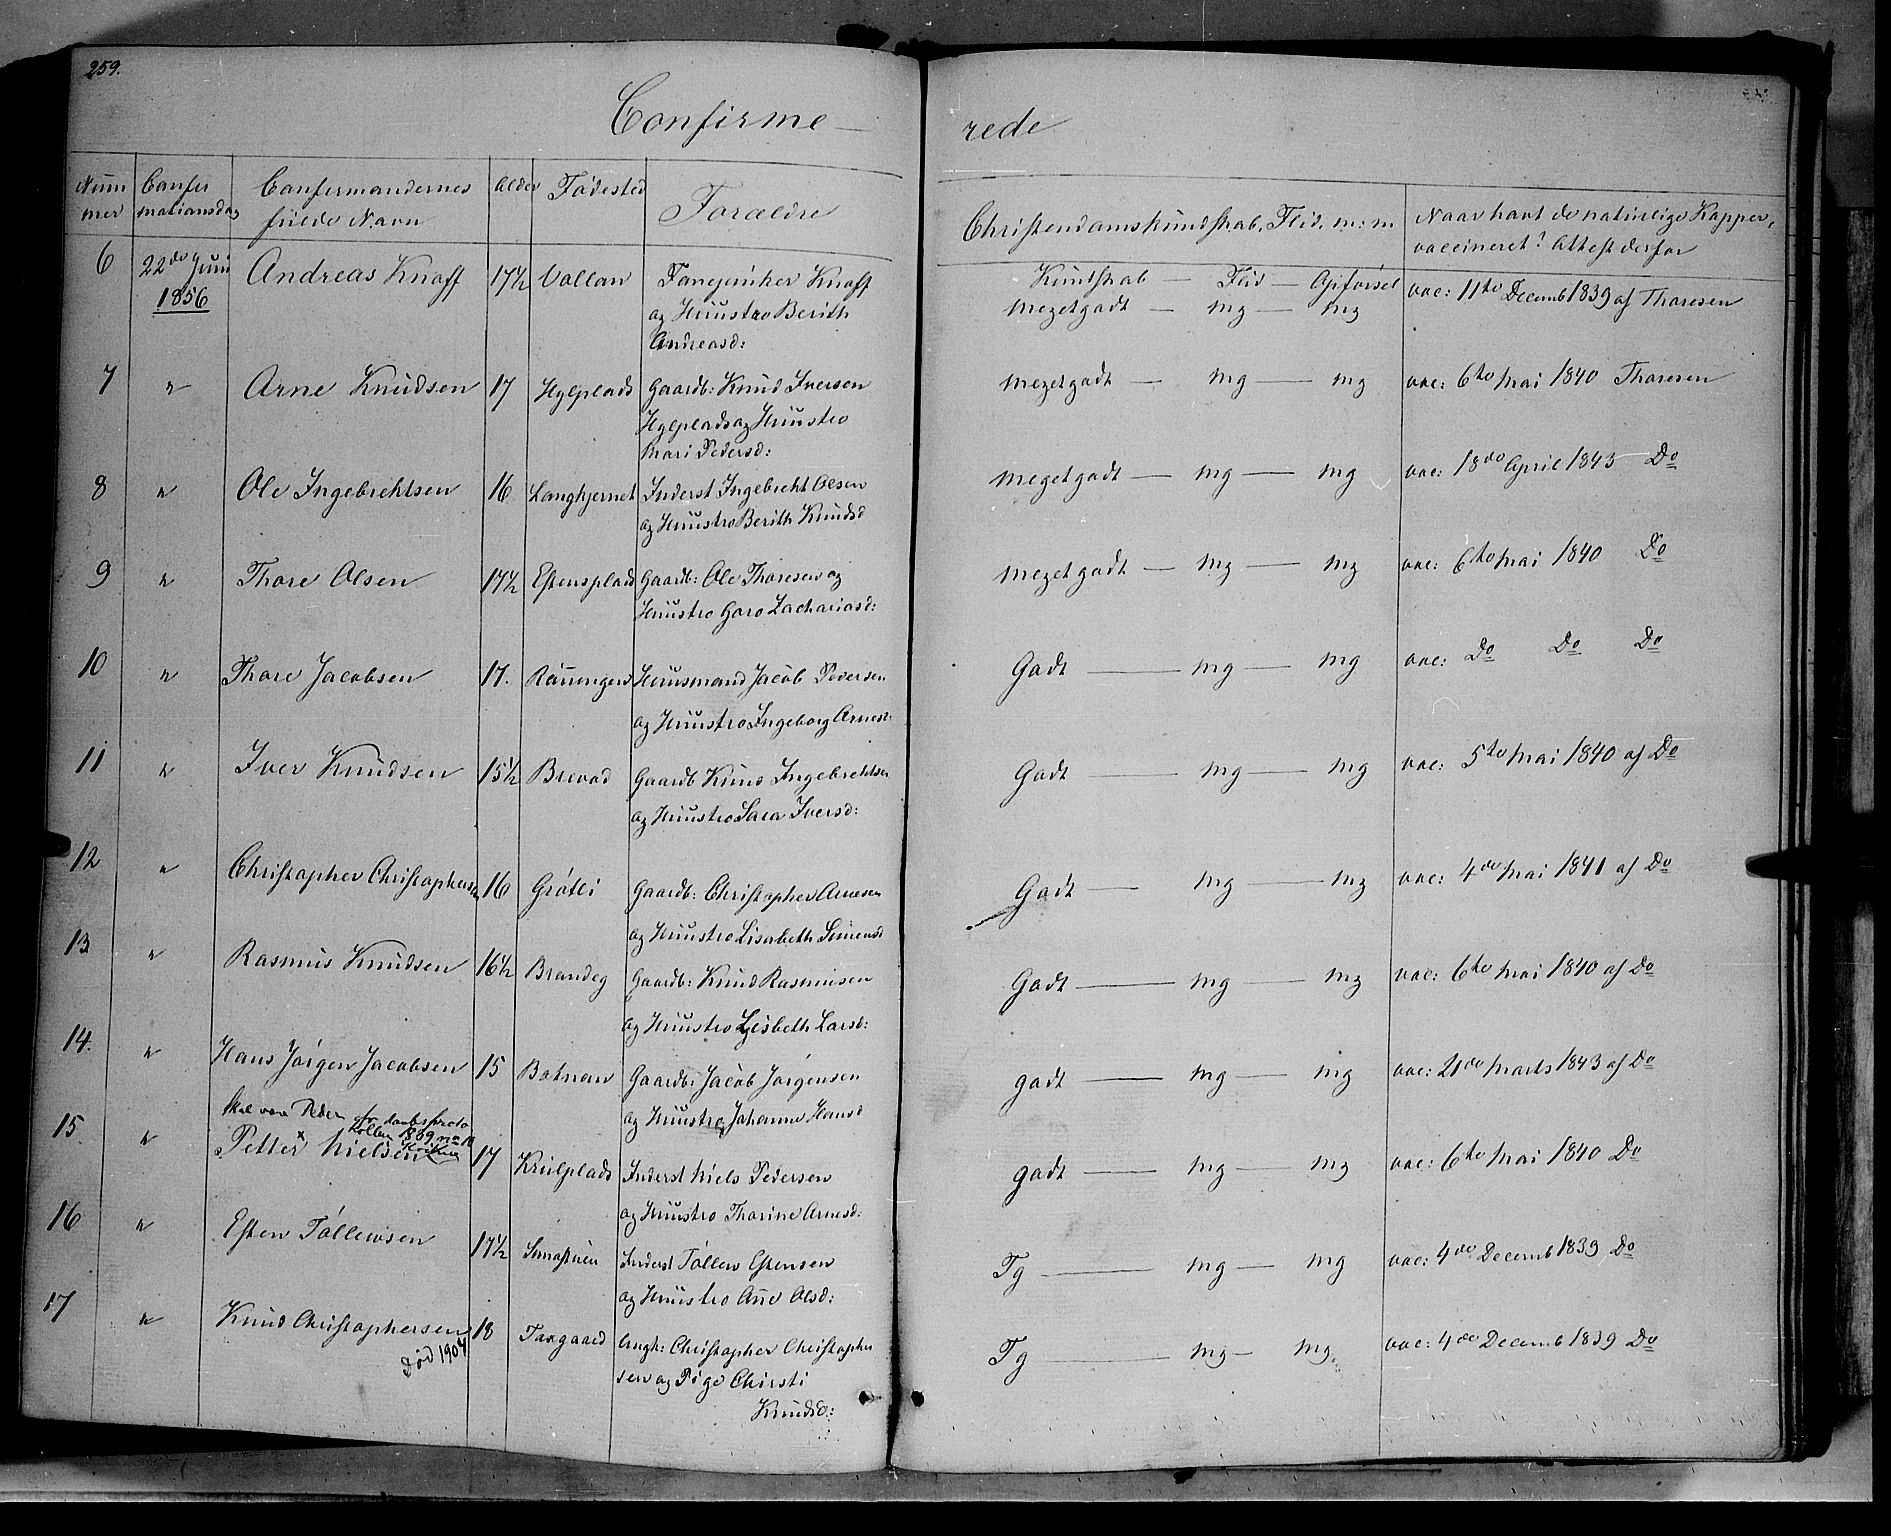 259.
Confirme- rede
Nummer Confirmationsdag Confirmandernes fulde Navn Alder Fødested Forældre Christendomskundskab, Flid, m: m Naar havt de naturlige Kopper, vaccineret? Attest derfor
Kundskab — Flid — Opførsel
6 22de Juni 1856 Andreas Knoff 17½ Vollan Knoff
og Hustro Berith
Andreasd:
Megetgodt — mg — mg vac: 11te Decemb 1839 af Thoresen
7 " Arne Knudsen 17 Gaardb: Knud Iversen
og Hustro
Mari Pedersd:
megetgodt — mg — mg vac: 6te Mai 1840 Thoresen
8 " Ole Ingebrektsen 16. Langkjernet Inderst Ingebrekt Olsen
og Hustro Berith Knudsd
megetgodt — mg — mg vac: 18de April 1843 Do
9 " Thore Olsen 17½ Estensplads Gaardb: Ole Thoresen og
Hustro Goro Zachariasd:
megetgodt — mg — mg vac: 6te Mai 1840 Do
10 " Thore Jacobsen 17. Huusmand Jacob Pedersen
og Hustro Ingeborg Arnesd:
Godt — mg — mg vac: Do Do Do
11 " Iver Knudsen 15½ Brevad Gaardb Knud Ingebrektsen
og Hustro Sara Iversd:
Godt — mg — mg vac: 5te Mai 1840 af Do
12 " Christopher Christophersen 16 Grøtli Gaardb: Christopher Arnesen
og Hustro Lisabeth Simensd
Godt — mg — mg vac: 4de Mai 1841 af Do
13 " Rasmus Knudsen 16½ Brandeg Gaardb: Knud Rasmusen
og Hustro Lisbeth Larsd:
Godt — mg — mg vac: 6te Mai 1840 af Do
14. " Hans Jørgen Jacobsen 15 Botnan Gaardb: Jacob Jørgensen
og Hustro Johanne Hansd
godt — mg — mg vac: 21de Marts 1843 af Do
skal være Peder
15. " Petter x Nielsen 17 Inderst Niels Pedersen
og Hustro Thorine Arnesd:
godt — mg — mg vac: 6te Mai 1840 Do
16 " Esten Tøllewsen 17½ Inderst Tøllew Estensen
og Hustro Ane Olsd:
Tg — mg — mg vac: 4de Decemb 1839 Do
17 " Knud Christophersen 18 Ungk: Christopher Christopher
sen og Pige Chirsti
Knudsd:
Tg — mg — mg vac: 4de Decemb 1839 Do
død 1904